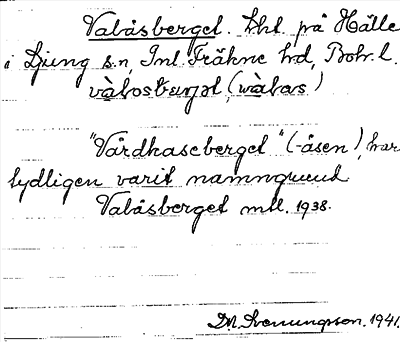 Valåsberget. bht på Hälle
i Ljung s:n, Inl. Fräkne hd, Boh. l.
(wàlas)
"Vårdhaseberget" (-åsen), har
tydligen varit namngrund
Valåsberget mtl. 1938.
D.A. Svenungsson. 1941.